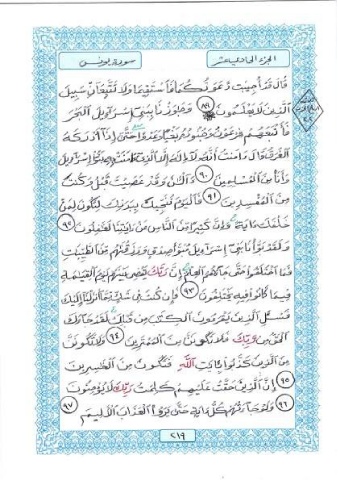 الجزء الحادي عشر
سورة يونس
قَالَ قَدْ أُجِيبَت دَّعْوَتُكُمَا فَاسْتَقِيمَا وَلَا تَتَّبِعَانِّ سَبِيلَ
الَّذِينَ لَا يَعْلَمُونَ ٨٩ وَجَاوَزْنَا بِبَنِي إِسْرَائِيلَ الْبَحْرَ
فَأَتْبَعَهُمْ فِرْعَوْنُ وَجُنُودُهُ بَغْيًا وَعَدْوًا حَتَّى إِذَا أَدْرَكَهُ
الْغَرَقُ قَالَ ءَامَنتُ أَنَّهُ لَا إِلَهَ إِلَّا الَّذِي ءَامَنَتْ بِهِ بَنُوا إِسْرَائِيلَ
وَأَنَا مِنَ الْمُسْلِمِينَ ٩٠ ءَالْـَٰنَ وَقَدْ عَصَيْتَ قَبْلُ وَكُنتَ
مِنَ الْمُفْسِدِينَ ٩١ فَالْيَوْمَ نُنَجِّيكَ بِبَدَنِكَ لِتَكُونَ لِمَنْ
خَلْفَكَ ءَايَةً وَإِنَّ كَثِيرًا مِّنَ النَّاسِ عَنْ ءَايَٰتِنَا لَغَٰفِلُونَ ٩٢
وَلَقَدْ بَوَّأْنَا بَنِي إِسْرَائِيلَ مُبَوَّأَ صِدْقٍ وَرَزَقْنَٰهُم مِّنَ الطَّيِّبَٰتِ
فَمَا اخْتَلَفُوا حَتَّى جَاءَهُمُ الْعِلْمُ إِنَّ رَبَّكَ يَقْضِي بَيْنَهُمْ يَوْمَ الْقِيَٰمَةِ
فِيمَا كَانُوا فِيهِ يَخْتَلِفُونَ ٩٣ فَإِن كُنتَ فِي شَكٍّ مِّمَّا أَنزَلْنَا إِلَيْكَ
فَسْـَٔلِ الَّذِينَ يَقْرَءُونَ الْكِتَٰبَ مِن قَبْلِكَ لَقَدْ جَاءَكَ
الْحَقُّ مِن رَّبِّكَ فَلَا تَكُونَنَّ مِنَ الْمُمْتَرِينَ ٩٤ وَلَا تَكُونَنَّ
مِنَ الَّذِينَ كَذَّبُوا بِـَٔايَٰتِ اللَّهِ فَتَكُونَ مِنَ الْخَٰسِرِينَ
٩٥ إِنَّ الَّذِينَ حَقَّتْ عَلَيْهِمْ كَلِمَتُ رَبِّكَ لَا يُؤْمِنُونَ
٩٦ وَلَوْ جَاءَتْهُمْ كُلُّ ءَايَةٍ حَتَّى يَرَوُا الْعَذَابَ الْأَلِيمَ ٩٧
٢١٩